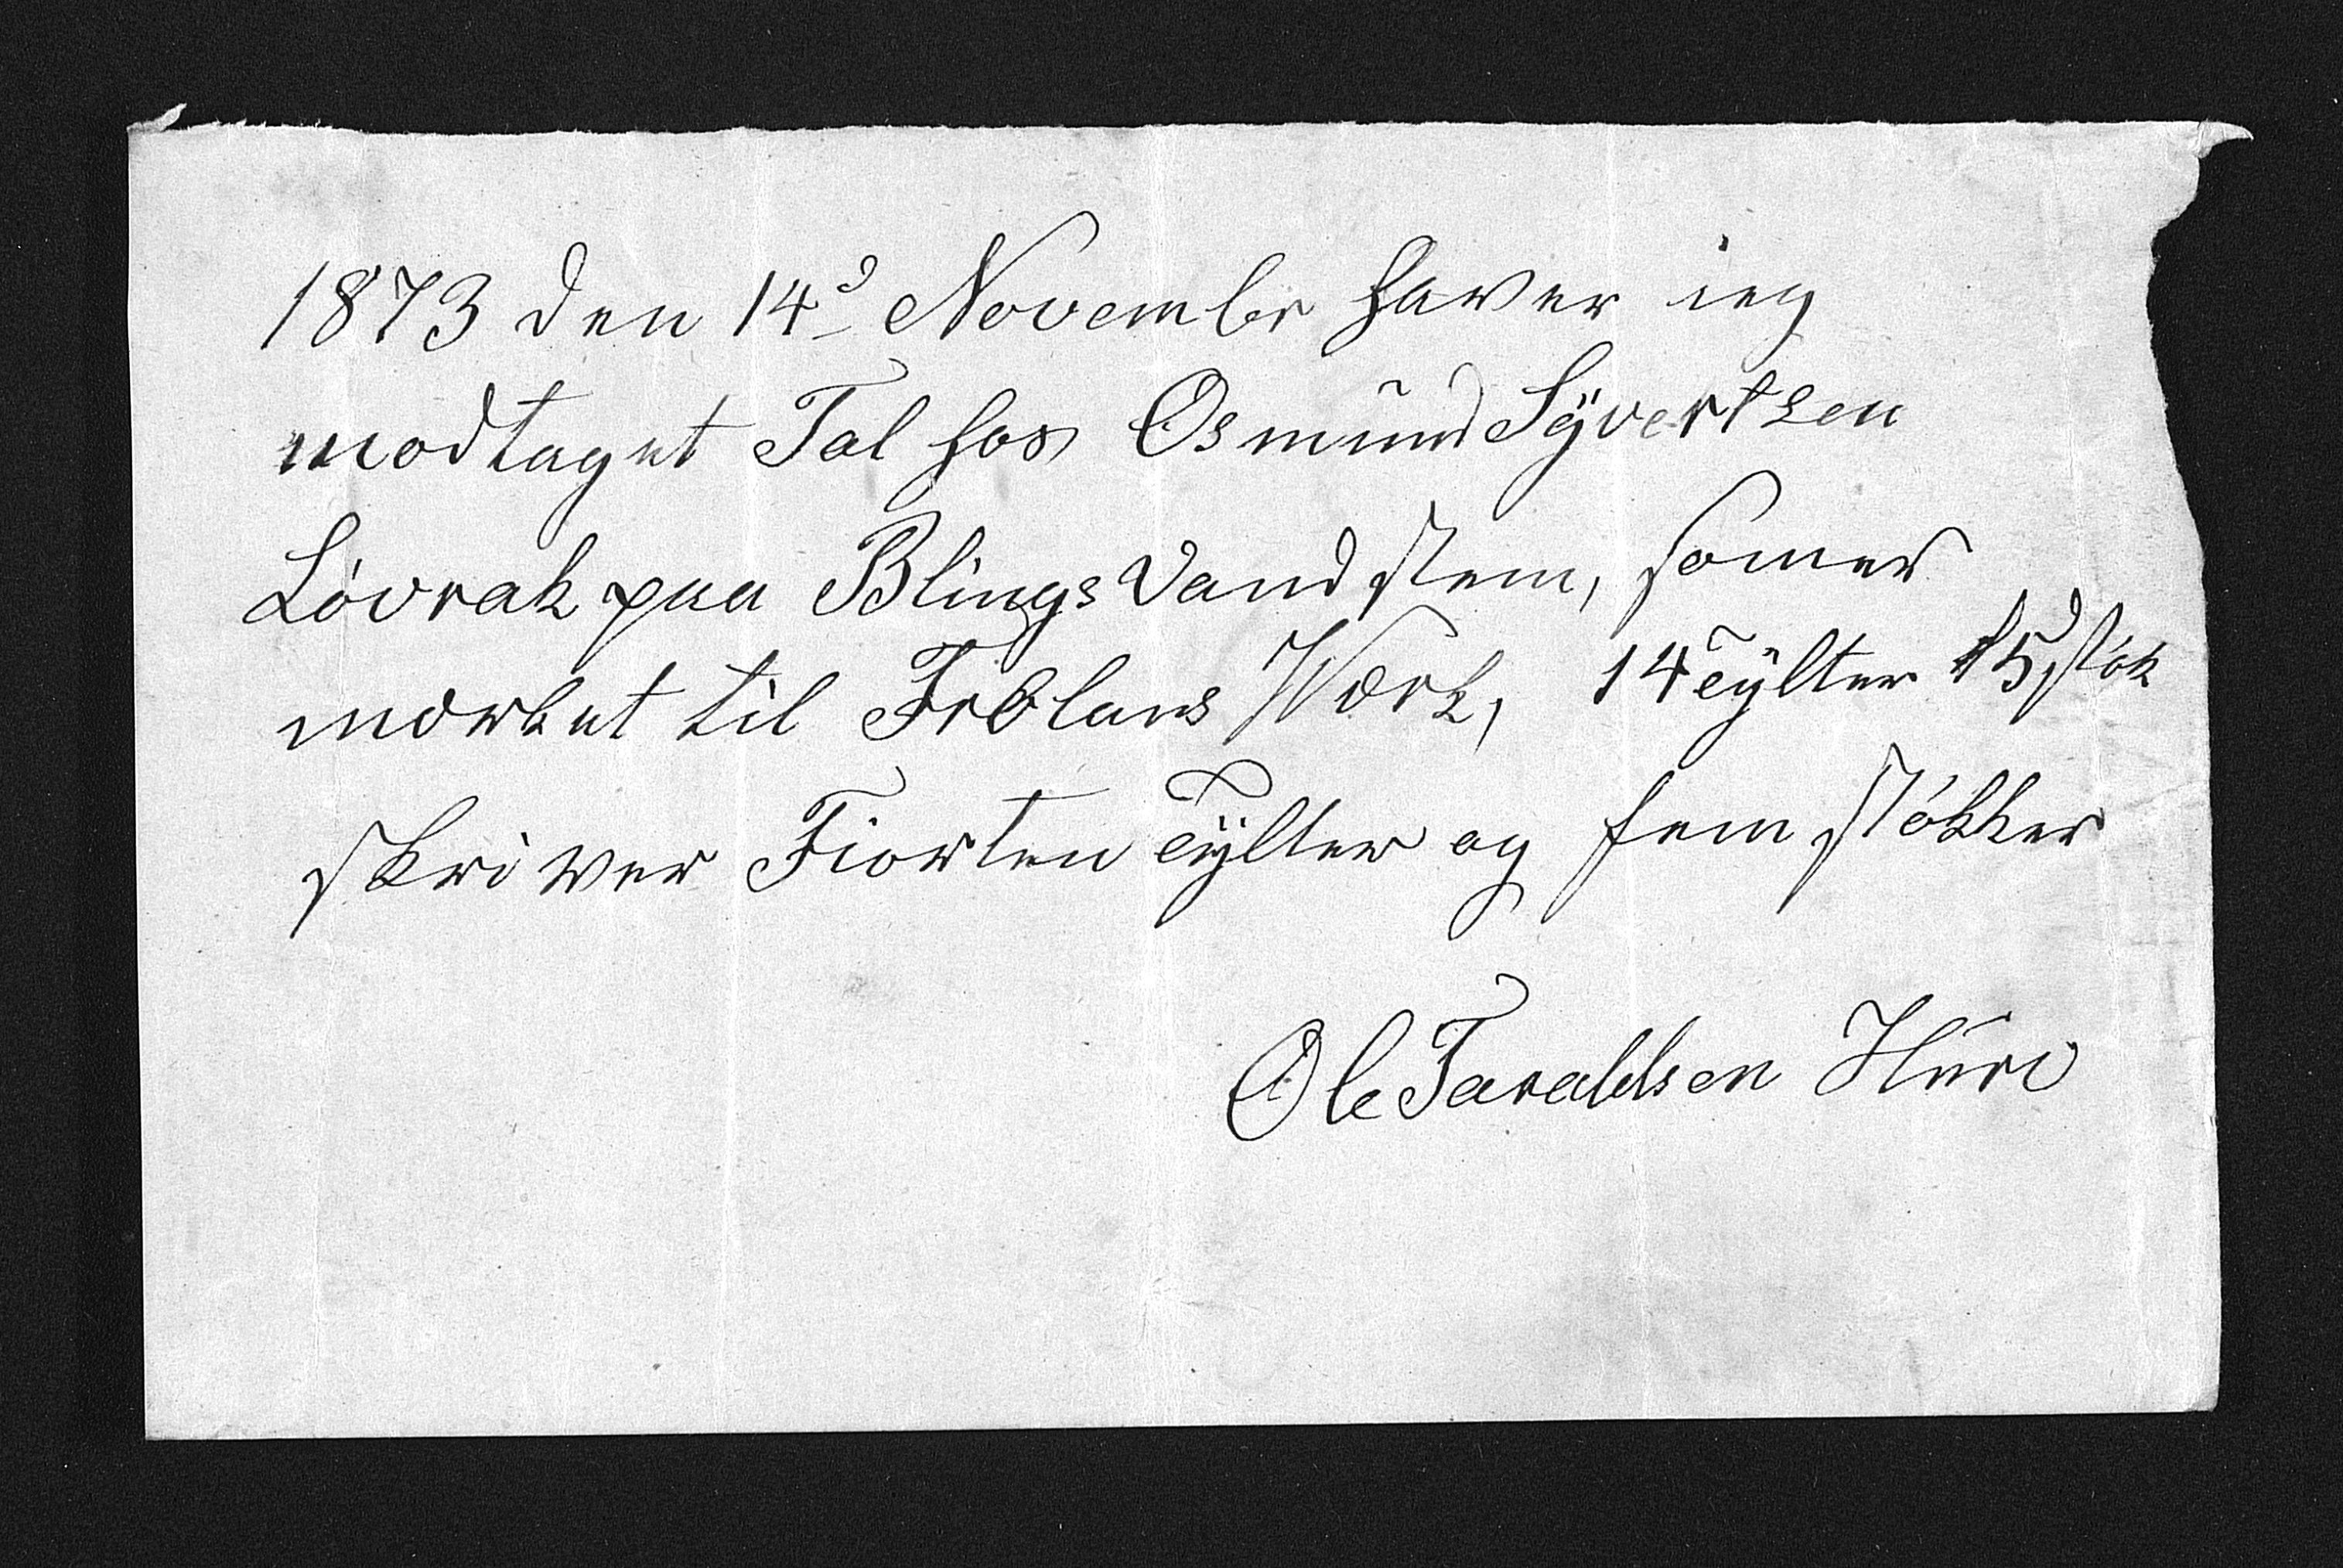 1873 den 14d Novembr haver ieg
modtaget Tal hos Osmund Syvertsen
Lövrak paa Blings Vand stem, somer
mærket til Frolans Wærk, 14 Tylter 5 stök
skriver Fiorten Tylter og fem stökker
Ole Taraldsen Huri